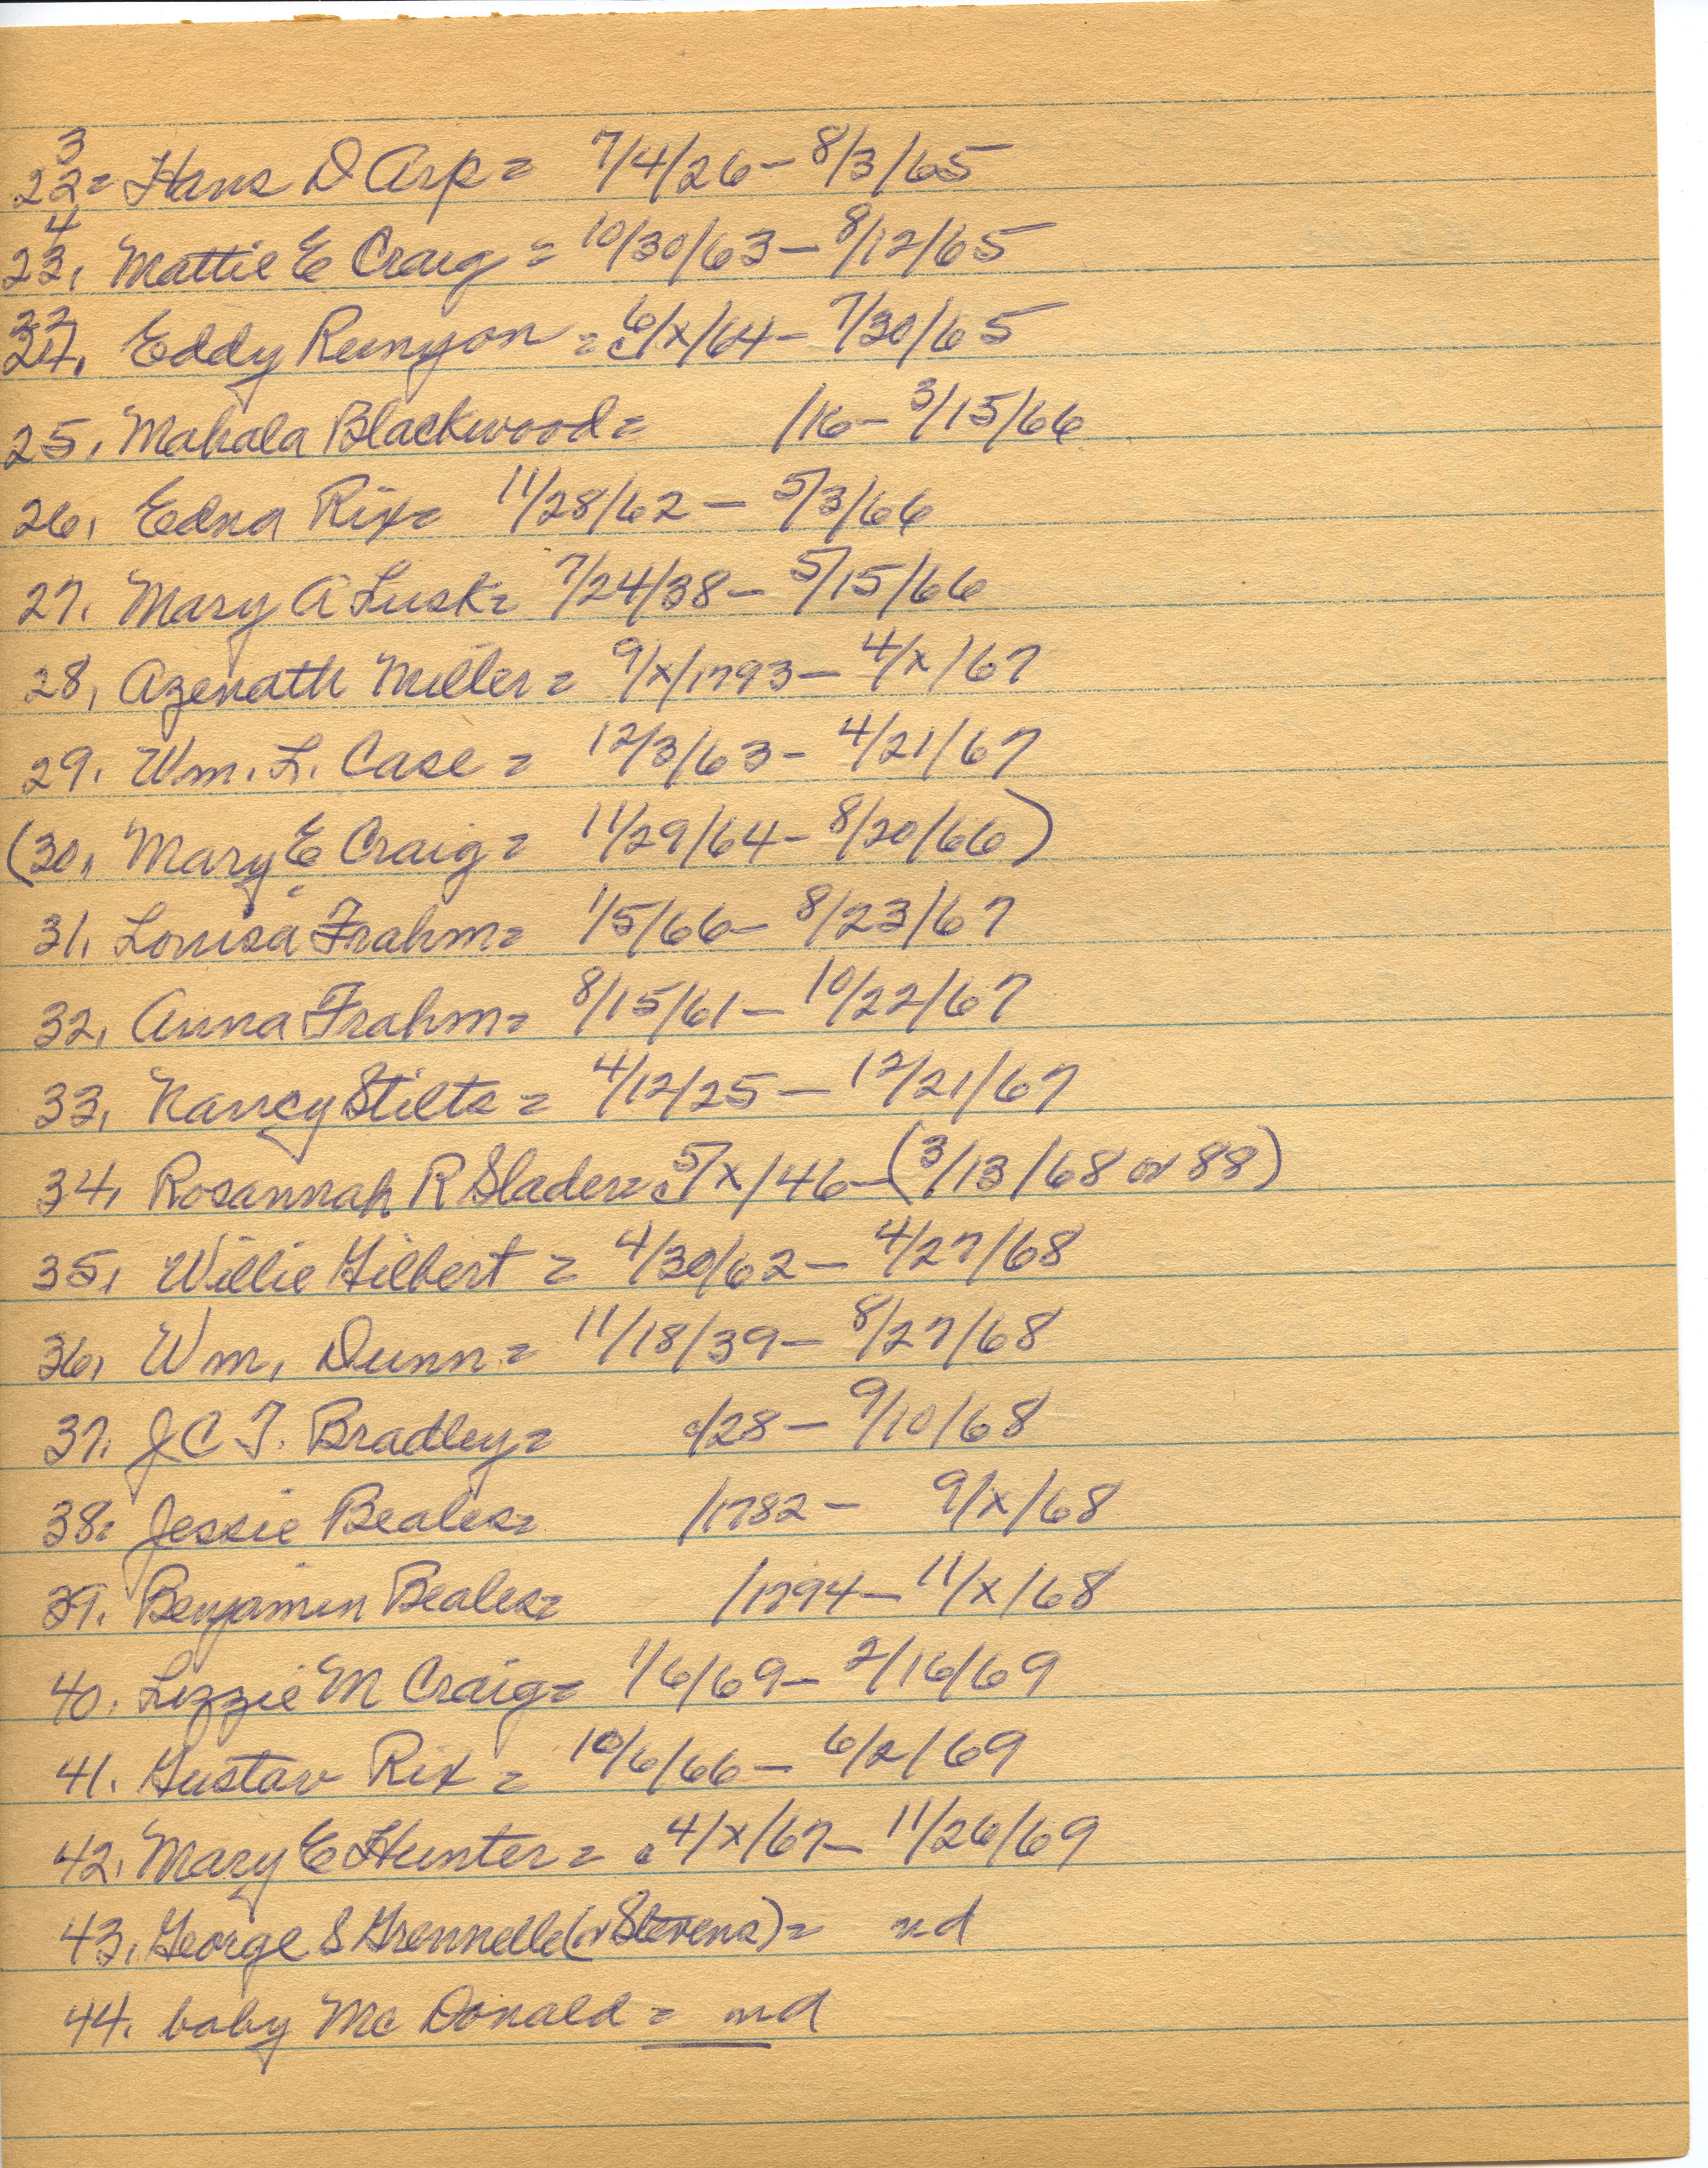 3
22= Hans D Arp = 7/4/26 - 8/3/65
4
23, Mattie E Craig = 10/30/63 - 8/12/65
22
24, Eddy Runyon = c6/x/64 - 7/30/65
25, Mahala Blackwood = /16 - 3/15/66
26, Edna Rix = 11/28/62 - 5/3/66
27. Mary A Lusk = 7/24/38 - 5/15/66
28, Azenath Miller = 9/x/1793 - 4/x/67
29. Wm. L. Case = 12/3/63 - 4/21/67
(30, Mary E Craig = 11/29/64 - 8/20/66)
31, Louisa Frahm = 1/5/66 - 8/23/67
32, Anna Frahm = 8/15/61 - 10/22/67
33, Nancy Stilts = 4/12/25 - 12/21/67
34, Rosannah R Slader = c5/x/46 - (3/13/68 or 88)
35, Willie Gilbert = 4/30/62 - 4/27/68
36, Wm, Dunn = 11/18/39 - 8/27/68
37. J C T. Bradley = c/28 - 9/10/68
38. Jessie Beales = /1782 - 9/x/68
39. Benjamin Beales = /1794 - 11/x/68
40. Lizzie M Craig = 1/6/69 - 2/16/69
41. Gustav Rix = 10/6/66 - 6/2/69
42. Mary E Hunter = c4/x/67 - 11/26/69
43, George S Grennelle (or Stevens) = nd
44. baby McDonald = nd